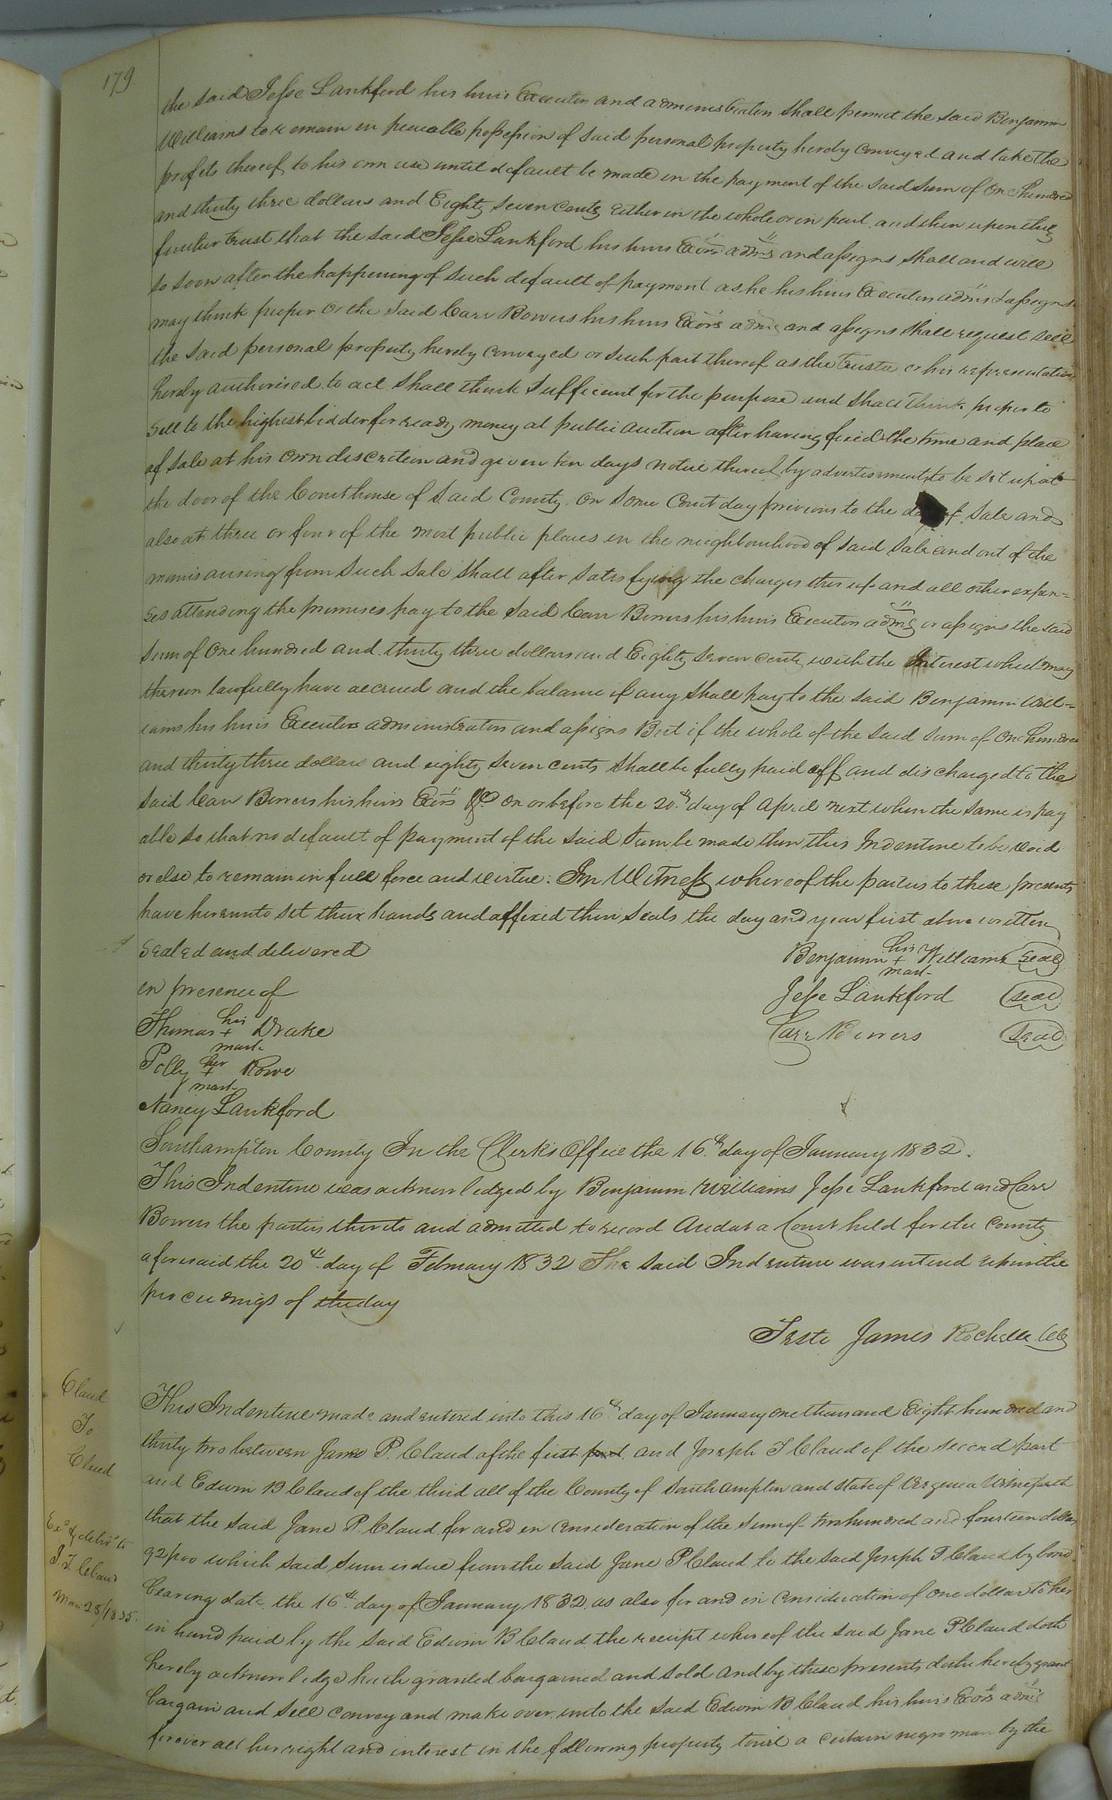 179
the said Jesse Lankford his heirs Executors and administrators shall permit the said Benjamin
Williams to remain in peacable possession of said personal property hereby conveyed and take the
profits thereof to his own use until default be made in the payment of the said sum of One hundred
and thirty three dollars and Eighty seven cents either in the whole or in part and then upon this
further trust that the said Jesse Lankford his heirs Exors adms and assigns shall and will
so soon after the happening of such default of payment as he his heirs Executors adms & assigns
may think proper or the said Carr Bowers his heirs Exors adms and assigns shall request sell
the said personal property hereby conveyed or such part thereof as the trustee or his representatives
hereby authorised to act shall think sufficient for the purpose and shall think proper to
sell to the highest bidder for ready money at public auction after having fixed the time and place
of sale at his own discretion and given ten days notice thereof by advertisements to be set up at
the door of the Courthouse of said County on some Court day previous to the day of sale and
also at three or four of the most public places in the neighbourhood of said sale and out of the
monies arising from such sale shall after satisfying the charges thereof and all other expen=
ses attending the premises pay to the said Carr Bowers his heirs Executors adms or assigns the said
sum of One hundred and thirty three dollars and Eighty seven cents with the Interest which may
thereon lawfully have accrued and the balance if any shall pay to the said Benjamin Will=
iams his heirs Executors administrators and assigns But if the whole of the said sum of One hundred
and thirty three dollars and eighty seven cents shall be fully paid off and discharged to the
said Carr Bowers his heirs Exors &c on or before the 20th day of April next when the same is pay
able so that no default of payment of the said sum be made then this Indenture to be void
or else to remain in full force and virtue. In Witness whereof the parties to these presents
have hereunto set their hands and affixed their seals the day and year first above written
Sealed and delivered
Benjamin his + mark Williams Seal
in presence of
Jesse Lankford Seal
Thomas his + mark Drake
Carr Bowers Seal
Polly her + mark Rowe
Nancy Lankford
Southampton County In the Clerk's Office the 16th day of January 1832.
This Indenture was acknowledged by Benjamin Williams Jesse Lankford and Carr
Bowers the parties thereto and admitted to record And at a Court held for the County
aforesaid the 20th day of February 1832 The said Indenture was entered upon the
proceedings of the day
Teste James Rochelle CC
Claud
To
Claud
Exd & delivd to
J T Claud
Mar 28/1835.
This Indenture made and entered into this 16th day of January one thousand Eight hundred and
thirty two between Jane P. Claud of the first part and Joseph T Claud of the second part
and Edwin B Claud of the third all of the County of Southampton and state of Virginia Witnesseth
that the said Jane P. Claud for and in consideration of the sum of two hundred and fourteen dollars
92/100 which said sum is due from the said Jane P Claud to the said Joseph T Claud by bond
bearing date the 16th day of January 1832 as also for and in consideration of one dollar to her
in hand paid by the said Edwin B Claud the receipt whereof the said Jane P Claud doth
hereby acknowledge hath granted bargained and sold and by these presents doth hereby grant
bargain and sell convey and make over unto the said Edwin B Claud his heirs Exors adms
forever all her right and interest in the following property towit a certain negro man by the